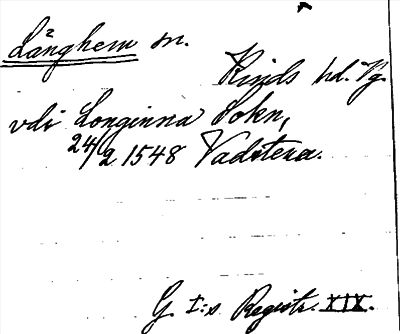 Långhem sn.
Kinds hd. Vg.
vdi Longinna Sokn,
24/2 1548 Vadstena.
G. I:s Registr. XIX.